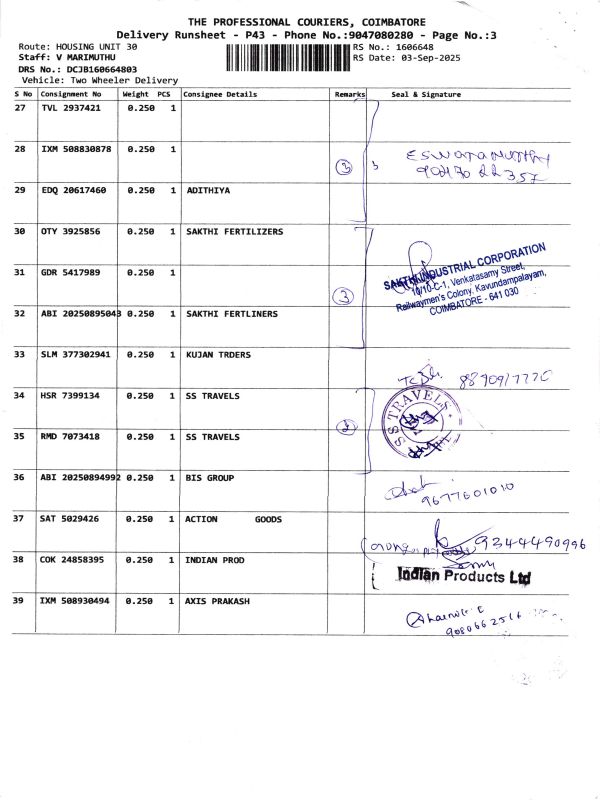 THE PROFESSIONAL COURIERS, COIMBATORE
Delivery Runsheet - P43 - Phone No.:9047080280 - Page No.:3
Route: HOUSING UNIT 30 RS No.: 1606648
Staff: V MARIMUTHU RS Date: 03-Sep-2025
DRS No.: DCJB160664803
Vehicle: Two Wheeler Delivery
S No Consignment No Weight PCS Consignee Details Remarks Seal & Signature
27 TVL 2937421 0.250 1
28 IXM 508830878 0.250 1
3 ESWARAMURTHY
29 EDQ 20617460 0.250 1 ADITHIYA
30 OTY 3925856 0.250 1 SAKTHI FERTILIZERS
SAKTHI INDUSTRIAL CORPORATION
31 GDR 5417989 0.250 1
10/10-C-1, Venkatasamy Street,
Railwaymen's Colony, Kavundampalayam,
3 COIMBATORE - 641 030
32 ABI 20250895043 0.250 1 SAKTHI FERTLINERS
33 SLM 377302941 0.250 1 KUJAN TRDERS
34 HSR 7399134 0.250 1 SS TRAVELS
2 SS TRAVELS
35 RMD 7073418 0.250 1 SS TRAVELS
36 ABI 20250894992 0.250 1 BIS GROUP
9677601010
37 SAT 5029426 0.250 1 ACTION GOODS
9344490996
38 COK 24858395 0.250 1 INDIAN PROD
Indian Products Ltd
39 IXM 508930494 0.250 1 AXIS PRAKASH